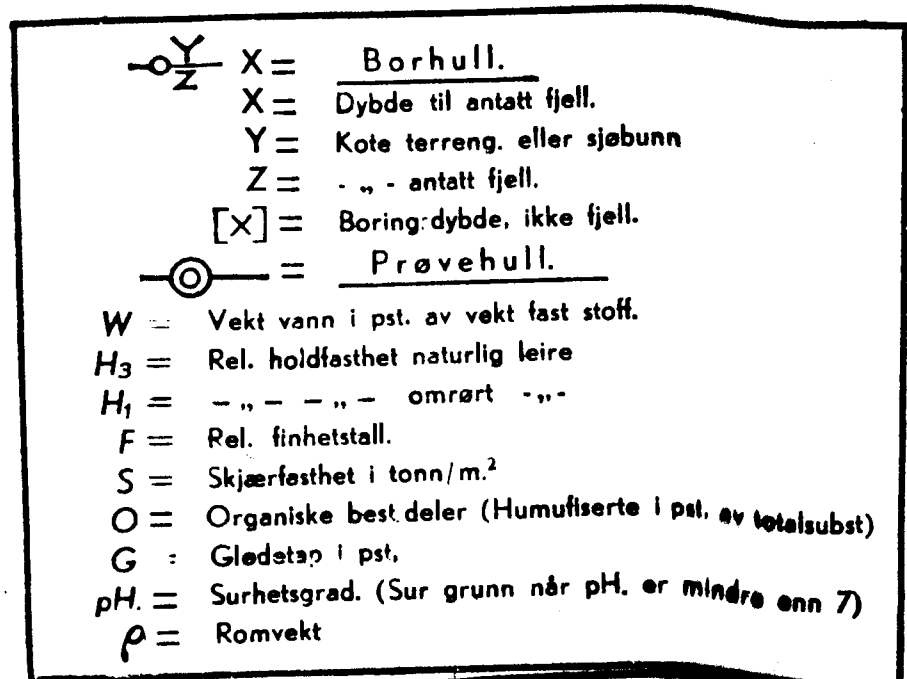 Y/Z X = Borhull.
X = Dybde til antatt fjell.
Y = Kote terreng. eller sjøbunn
Z = - „ - antatt fjell.
[X] = Boring: dybde, ikke fjell.
= Prøvehull.
W = Vekt vann i pst. av vekt fast stoff.
H₃ = Rel. holdfasthet naturlig leire
H₁ = - „ - - „ - omrørt - „ -
F = Rel. finhetstall.
S = Skjærfasthet i tonn/m.²
O = Organiske best.deler (Humufiserte i pst. av totalsubst)
G : Glødetap i pst.
pH. = Surhetsgrad. (Sur grunn når pH. er mindre enn 7)
ρ = Romvekt